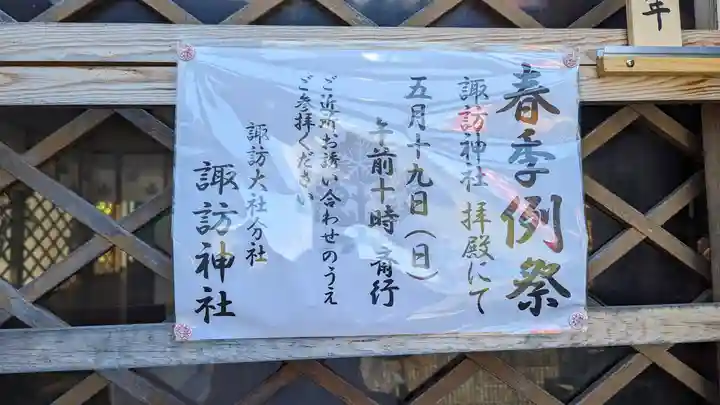 年
春季例祭
諏訪神社 拝殿にて
五月十九日(日)
午前十時 斎行
ご近所お誘い合わせのうえ
ご参拝ください
諏訪大社分社
諏訪神社